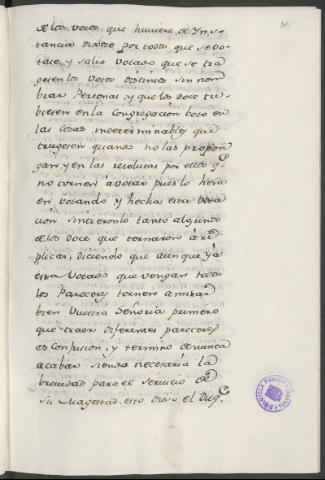 de los votos que huuiere de Yns-
tancia dixose por todos que se vo-
tase, y salio Votado que se tra
gesen los Votos distintos sin nom
brar Personas, y que los doce tu-
biesen en la Congregacion boto en
las cosas indeterminables que
trugeron quando no las propon
gan, y en las resolutas por ellos qe
no tornen á votar pues lo hera
en votando y hecha esta vota
cion sintieronlo tanto algunos
de los doce que tornaron á re
plicar diciendo que aunque yá
esta Votado que vengan todos
los Pareceres tornen á mirar
bien Vuestra Señoria primero
que traer diferentes pareceres
es confusion, y termino de nunca
acabar siendo necesaria la
brevedad para el servicio de
Su Magestad. esto dixo el Duqe
BIBLIOTECA PUBLICA
TOLEDO